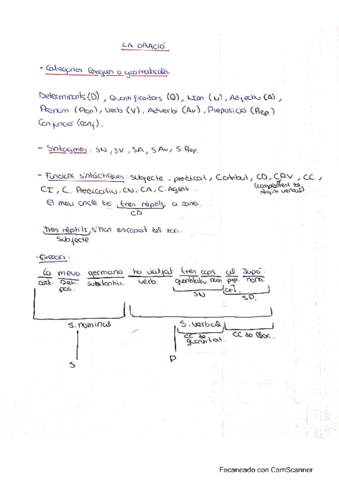 LA ORACIÓ
- Categories lèxiques o gramaticals.
Determinants (D), Quantificadors (Q), Nom (N), Adjectiu (A),
Pronom (Pron), Verb (V), Adverbi (Av), Preposició (Prep.)
Conjunció (conj).
- Sintagmes: SN, SV, SA, SAv, S.Prep.
- Funcions sintàctiques: subjecte, predicat, atribut, CD, CRV, CC,
(complement de règim verbal)
CI, C. Predicatiu, CN, CA, C. Agent...
El meu oncle té tres rèptils a casa.
CD
Tres rèptils s'han escapat del zoo.
Subjecte
- Exercici:
La meva germana ha viatjat tres cops al Japó.
art. Det. pos. substantiu verb. quantitatiu nom prep. nom.
SN
S. nominal S. verbal
CC de quantitat CC de lloc.
S P
Escaneado con CamScanner